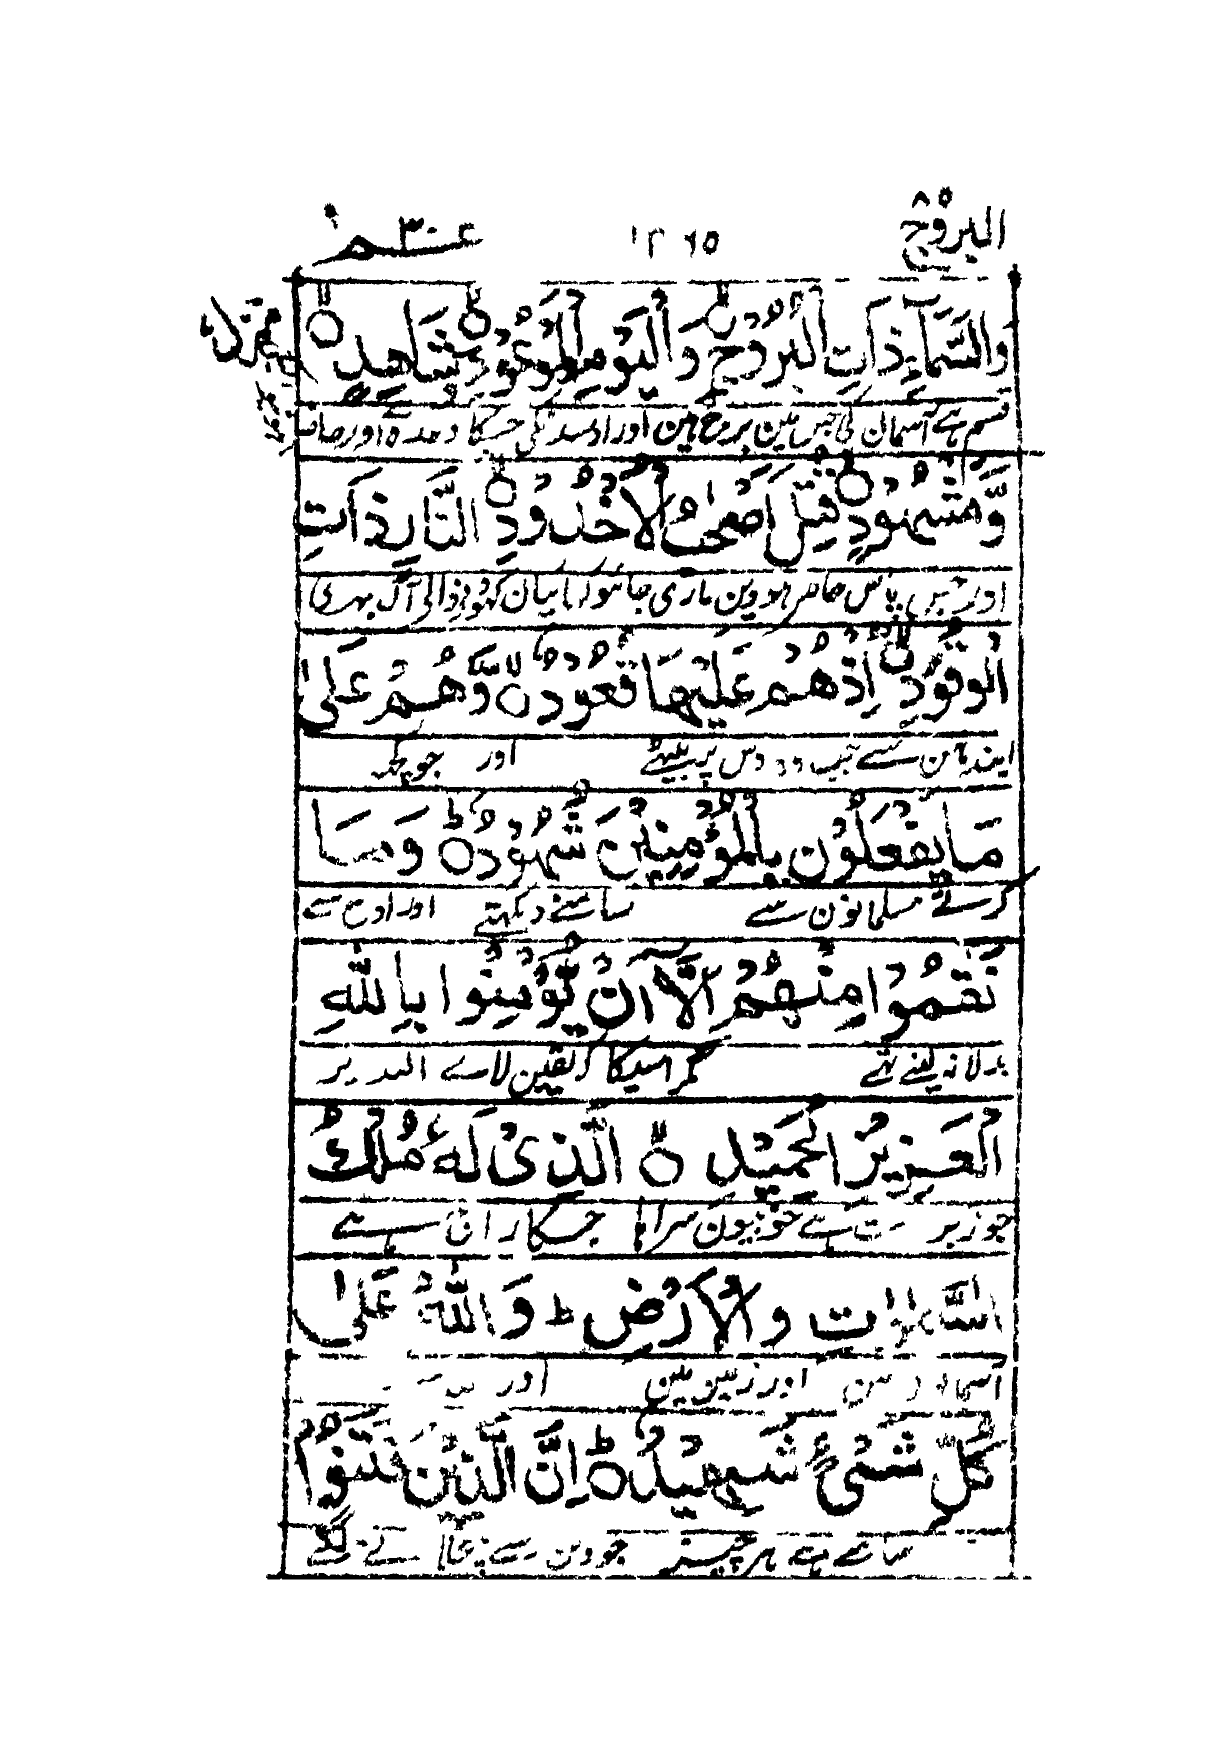 البروج ٨٥ ١٢٦٥ عم ٣٠
وَالسَّمَآءِ ذَاتِ الْبُرُوْجِ ۙ وَالْيَوْمِ الْمَوْعُوْدِ ۙ وَشَاهِدٍ
قسم ہے آسمان کی جس مین بروج ہین اور اوسدنکی جسکا وعدہ ہے اور حاضر
وَّمَشْهُوْدٍ ۙ قُتِلَ اَصْحٰبُ الْاُخْدُوْدِ ۙ النَّارِ ذَاتِ
اور جس پاس حاضر ہووین ماری جائیو کہائیان کہودنیوالی آگ بہری
الْوَقُوْدِ ۙ اِذْ هُمْ عَلَيْهَا قُعُوْدٌ ۙ وَّهُمْ عَلٰى
ایندہن سے جب وہ اوس پر بیٹھے اور جو کچھ
مَا يَفْعَلُوْنَ بِالْمُؤْمِنِيْنَ شُهُوْدٌ ؕ وَمَا
کرتے مسلمانون سے سامنے دیکھتے اور اون سے
نَقَمُوْا مِنْهُمْ اِلَّآ اَنْ يُّؤْمِنُوْا بِاللّٰهِ
بدلا نہ لیتے تھے مگر اسیکا کہ یقین لاے اللہ پر
الْعَزِيْزِ الْحَمِيْدِ ۙ الَّذِىْ لَهٗ مُلْكُ
جو زبردست ہے خوبیون سراہا جسکا راج ہے
السَّمٰوٰتِ وَالْاَرْضِ ؕ وَاللّٰهُ عَلٰى
آسمانون مین اور زمین مین اور اللہ کے
كُلِّ شَىْءٍ شَهِيْدٌ ؕ اِنَّ الَّذِيْنَ فَتَنُوا
سامنے ہے ہر چیز جو دین سے بچلانے لگے